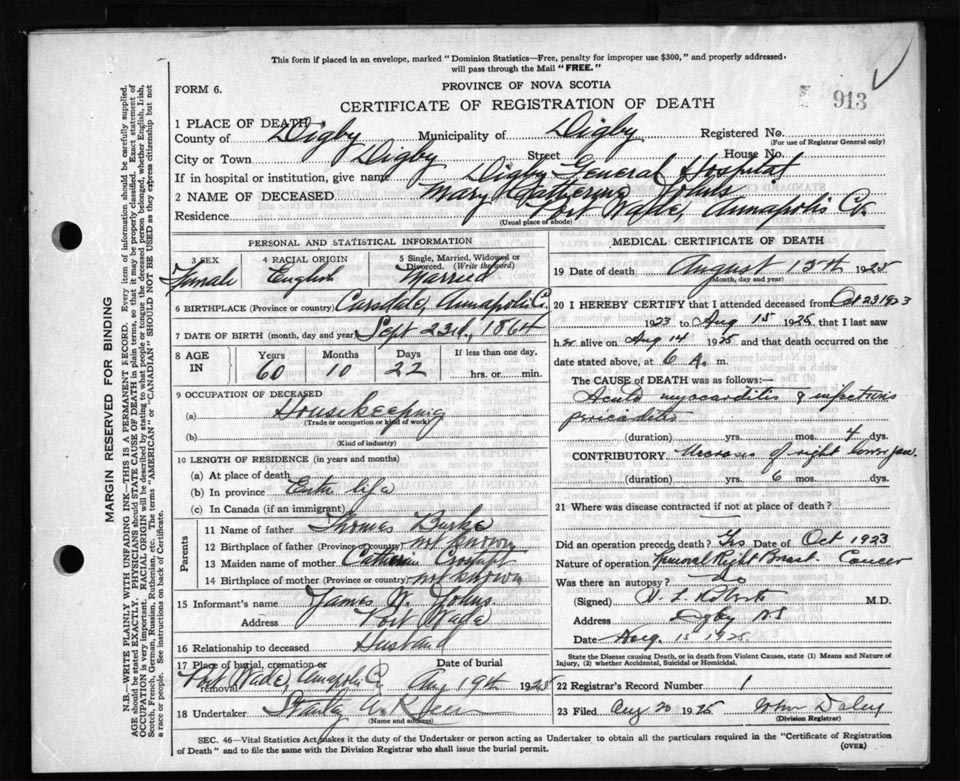 This form if placed in an envelope, marked "Dominion Statistics—Free, penalty for improper use $300," and properly addressed,
will pass through the Mail "FREE."
FORM 6.
PROVINCE OF NOVA SCOTIA
CERTIFICATE OF REGISTRATION OF DEATH
913
1 PLACE OF DEATH
County of Digby Municipality of Digby Registered No.
(For use of Registrar General only)
City or Town Digby Street House No.
If in hospital or institution, give name Digby General Hospital
2 NAME OF DECEASED Mary Catherine Johns
Residence Port Wade, Annapolis Co.
(Usual place of abode)
PERSONAL AND STATISTICAL INFORMATION
3 SEX Female
4 RACIAL ORIGIN English
5 Single, Married, Widowed or Divorced. (Write the word) Married
6 BIRTHPLACE (Province or country) Annapolis Co.
7 DATE OF BIRTH (month, day and year) Sept 23d, 1864
8 AGE IN
Years Months Days If less than one day,
60 10 22 hrs. or min.
9 OCCUPATION OF DECEASED
(a) Housekeeping
(Trade or occupation or kind of work)
(b)
(Kind of industry)
10 LENGTH OF RESIDENCE (in years and months)
(a) At place of death
(b) In province Entire life
(c) In Canada (if an immigrant)
Parents
11 Name of father Thomas Burke
12 Birthplace of father (Province or country) not known
13 Maiden name of mother Catherine
14 Birthplace of mother (Province or country) not known
15 Informant's name James W. Johns
Address Port Wade
16 Relationship to deceased Husband
17 Place of burial, cremation or removal Date of burial
Port Wade, Annapolis Co. Aug 19th 1925
18 Undertaker Stanley
(Name and address)
MEDICAL CERTIFICATE OF DEATH
19 Date of death August 15th 1925
(Month, day and year)
20 I HEREBY CERTIFY that I attended deceased from Oct 23 1923
1923 to Aug 15 1925, that I last saw
her alive on Aug 14 1925 and that death occurred on the
date stated above, at 6 A. m.
The CAUSE OF DEATH was as follows:—
Acute myocarditis & infectious
pericarditis
(duration) yrs. mos. 4 dys.
CONTRIBUTORY Necrosis of right lower jaw.
(duration) yrs. 6 mos. dys.
21 Where was disease contracted if not at place of death?
Did an operation precede death? Yes Date of Oct 1923
Nature of operation Removal Right Breast. Cancer
Was there an autopsy? No
(Signed) M.D.
Address Digby NS
Date Aug. 15 1925
State the Disease causing Death, or in death from Violent Causes, state (1) Means and Nature of
Injury, (2) whether Accidental, Suicidal or Homicidal.
22 Registrar's Record Number 1
23 Filed Aug 20 1925 John Daley
(Division Registrar)
SEC. 46—Vital Statistics Act, makes it the duty of the Undertaker or person acting as Undertaker to obtain all the particulars required in the "Certificate of Registration
of Death" and to file the same with the Division Registrar who shall issue the burial permit.
(OVER)
MARGIN RESERVED FOR BINDING
N.B.—WRITE PLAINLY WITH UNFADING INK—THIS IS A PERMANENT RECORD. Every item of information should be carefully supplied.
AGE should be stated EXACTLY. PHYSICIANS should STATE CAUSE OF DEATH in plain terms, so that it may be properly classified. Exact statement of
OCCUPATION is very important. RACIAL ORIGIN will be described by stating to what people or tongue the deceased person belonged, whether English, Irish,
Scotch, French, German, Russian, Ruthenian, etc. The terms "AMERICAN" or "CANADIAN" SHOULD NOT BE USED as they express citizenship but not
a race or people. See instructions on back of Certificate.